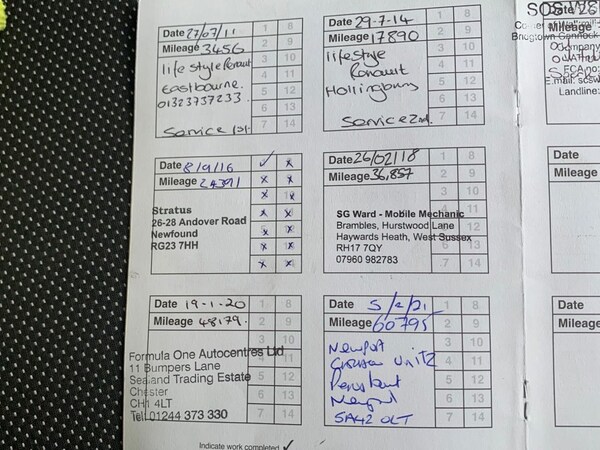 Date 27/07/11 1 8
Mileage 3456 2 9
life style Renault 3 10
Eastbourne. 4 11
01323737233. 5 12
6 13
Service 1st. 7 14
Date 29-7-14 1 8
Mileage 17890 2 9
lifestyle 3 10
Renault 4 11
Hollingbury 5 12
6 13
Service 2nd. 7 14
Date 8/9/16
Mileage 24391
Stratus
26-28 Andover Road
Newfound
RG23 7HH
Date 26/02/18 1 8
Mileage 36,857 2 9
3 10
SG Ward - Mobile Mechanic
Brambles, Hurstwood Lane
Haywards Heath, West Sussex
RH17 7QY
07960 982783 7 14
Date 19-1-20 1 8
Mileage 48179. 2 9
3 10
Formula One Autocentres Ltd 11
11 Bumpers Lane
Sealand Trading Estate 5 12
Chester 6 13
CH1 4LT
Tel: 01244 373 330 7 14
Date 5/2/21 1 8
Mileage 60795 2 9
Newport 3 10
Unit 2 4 11
5 12
6 13
SA42 0LT 7 14
Indicate work completed ✓
SOS
Mileage
Company
FCA no:
E.mail:
Landline:
Date
Mileage
Date
Mileage